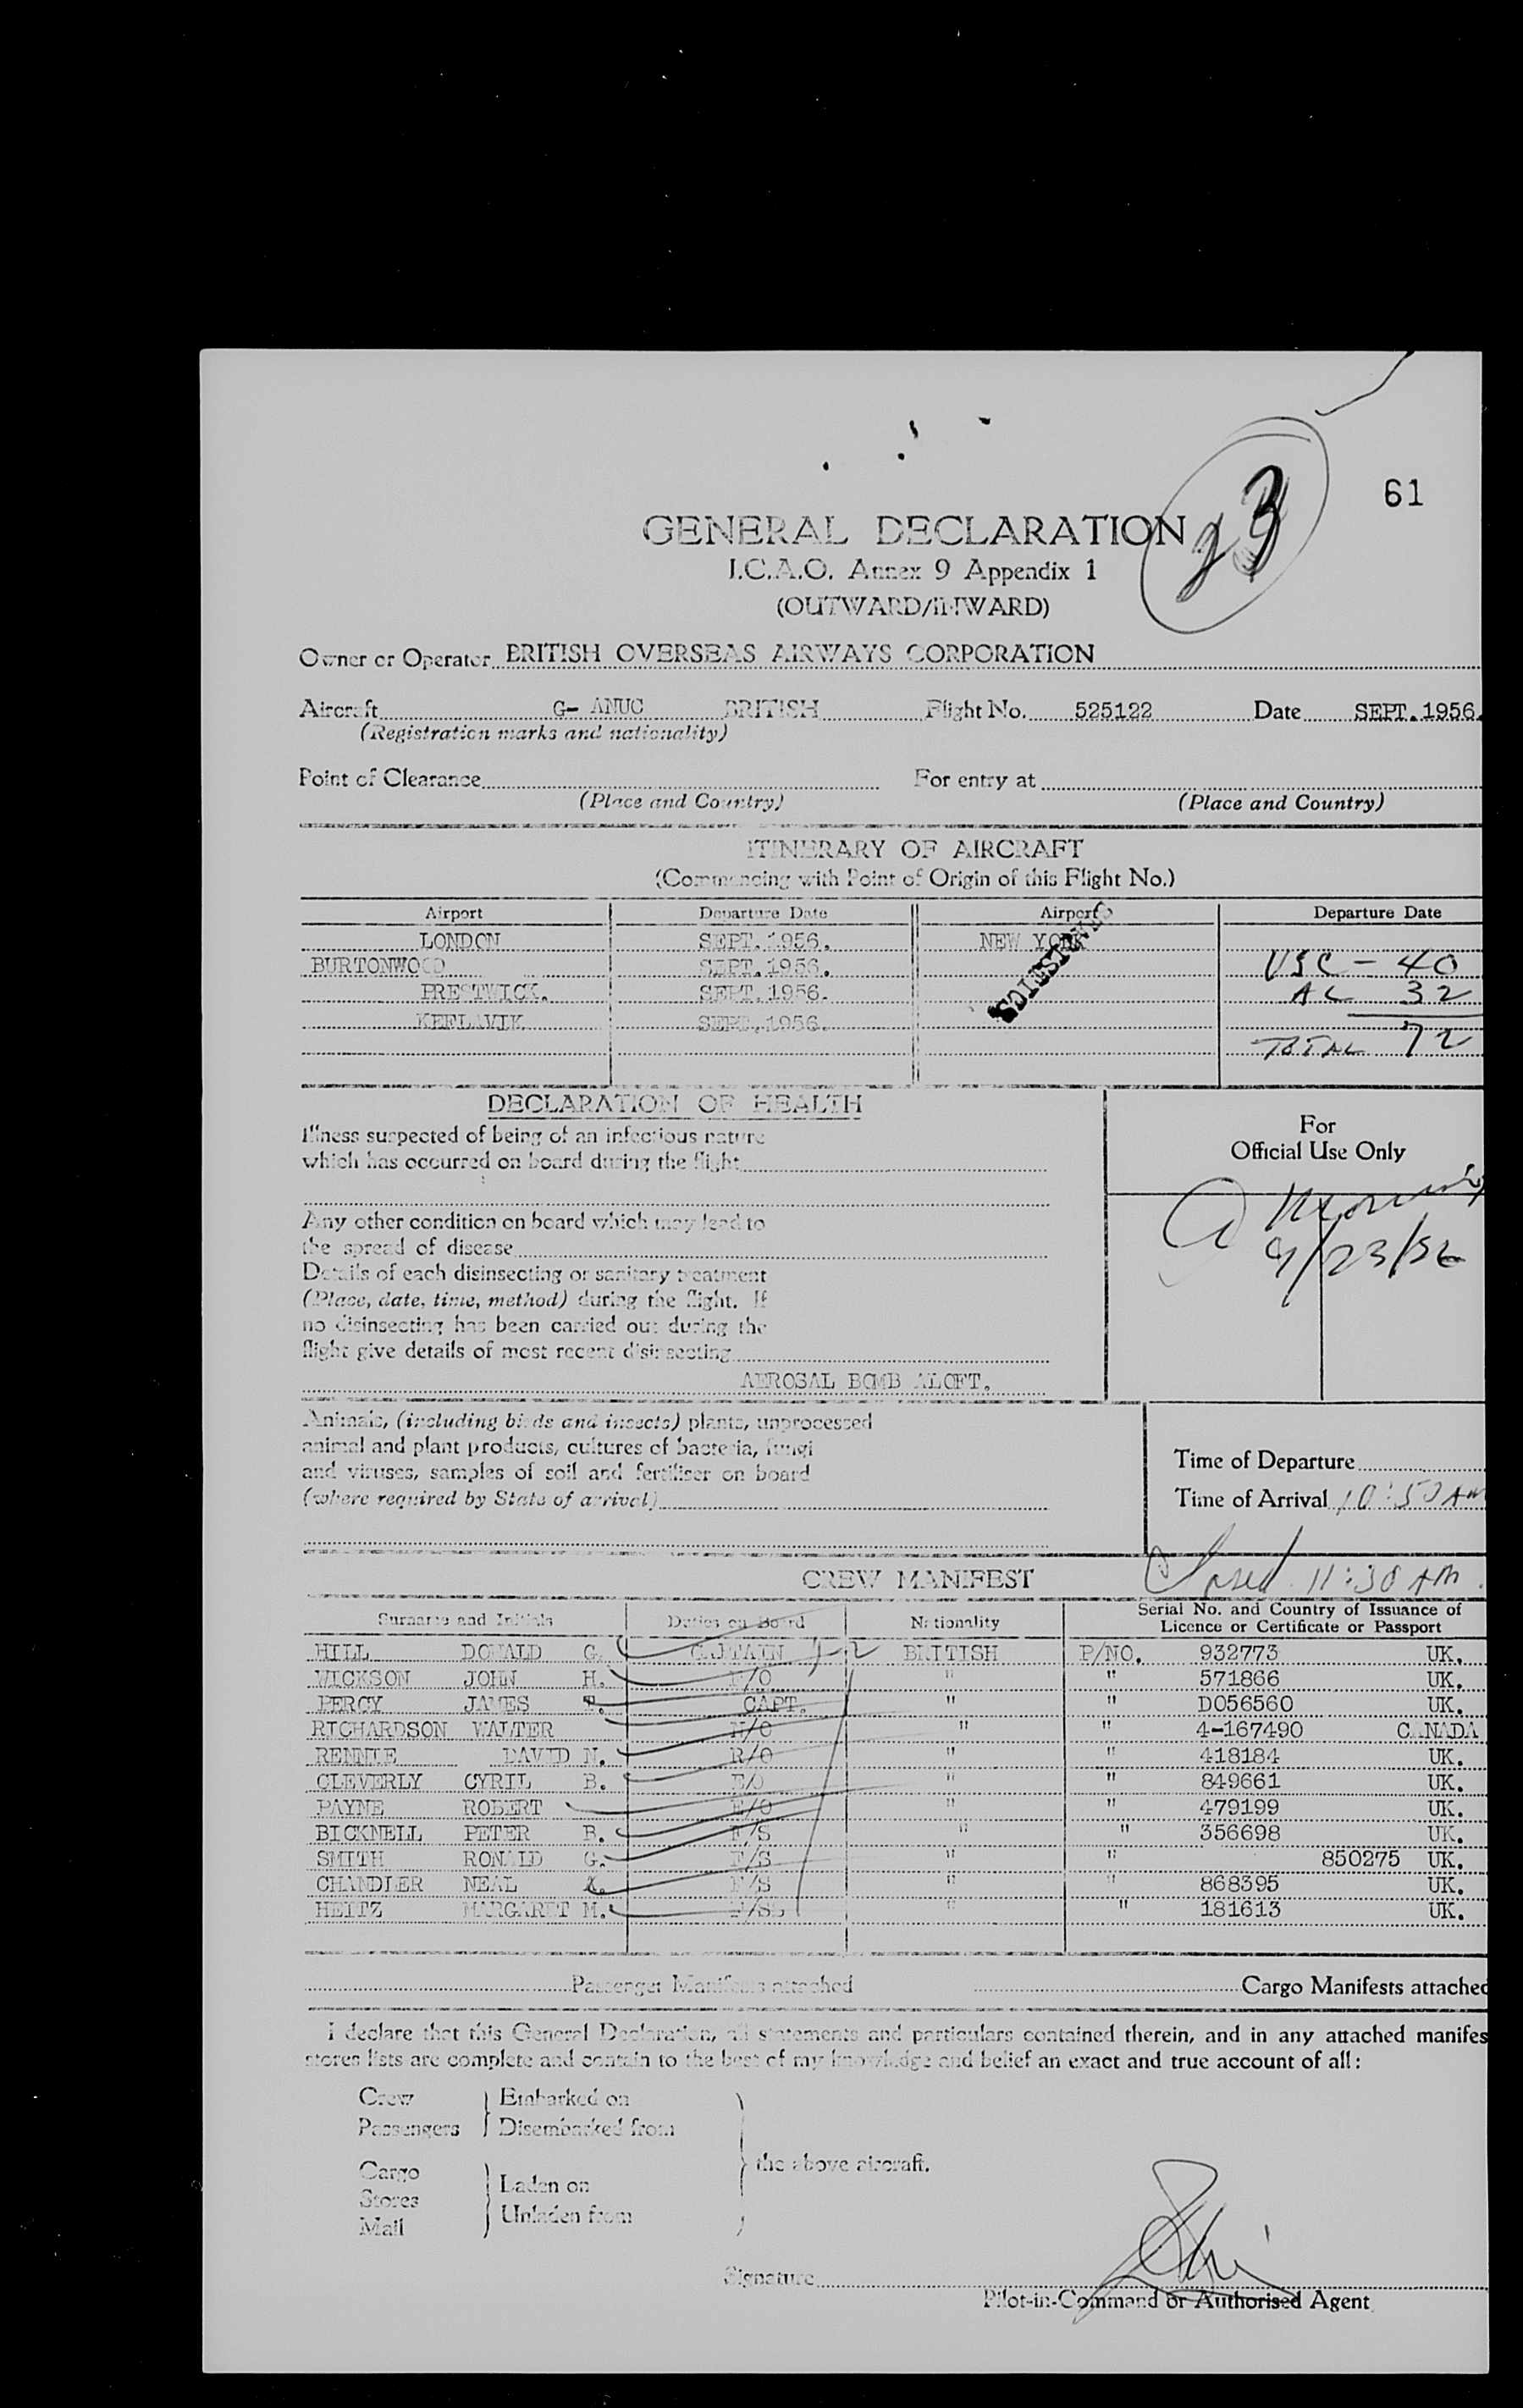 61
23
GENERAL DECLARATION
I.C.A.O. Annex 9 Appendix 1
(OUTWARD/INWARD)
Owner or Operator BRITISH OVERSEAS AIRWAYS CORPORATION
Aircraft G- ANUC BRITISH Flight No. 525122 Date SEPT.1956.
(Registration marks and nationality)
Point of Clearance For entry at
(Place and Country) (Place and Country)
ITINERARY OF AIRCRAFT
(Commencing with Point of Origin of this Flight No.)
Airport Departure Date Airport Departure Date
LONDON SEPT.1956. NEW YORK
BURTONWOOD SEPT.1956. USC - 40
PRESTWICK. SEPT.1956. AC 32
KEFLAVIK SEPT.1956.
TOTAL 72
DECLARATION OF HEALTH
For
Official Use Only
Illness suspected of being of an infectious nature
which has occurred on board during the flight
9/23/56
Any other condition on board which may lead to
the spread of disease
Details of each disinsecting or sanitary treatment
(Place, date, time, method) during the flight. If
no disinsecting has been carried out during the
flight give details of most recent disinsecting
AEROSAL BOMB ALOFT.
Animals, (including birds and insects) plants, unprocessed
animal and plant products, cultures of bacteria, fungi
and viruses, samples of soil and fertiliser on board
(where required by State of arrival)
Time of Departure
Time of Arrival 10:50 AM
11:30 AM.
CREW MANIFEST
Surname and Initials Duties on Board Nationality Serial No. and Country of Issuance of
Licence or Certificate or Passport
HILL DONALD G. CAPTAIN 1-2 BRITISH P/NO. 932773 UK.
WICKSON JOHN H. F/O " " 571866 UK.
PERCY JAMES T. CAPT. " " D056560 UK.
RICHARDSON WALTER N/O " " 4-167490 CANADA
RENNIE DAVID N. R/O " " 418184 UK.
CLEVERLY CYRIL B. E/O " " 849661 UK.
PAYNE ROBERT E/O " " 479199 UK.
BICKNELL PETER B. F/S " " 356698 UK.
SMITH RONALD G. F/S " " 850275 UK.
CHANDLER NEAL A. F/S " " 868395 UK.
HEITZ MARGARET M. " " 181613 UK.
Passenger Manifests attached Cargo Manifests attached
I declare that this General Declaration, all statements and particulars contained therein, and in any attached manifes
stores lists are complete and contain to the best of my knowledge and belief an exact and true account of all:
Crew Embarked on
Passengers Disembarked from
the above aircraft.
Cargo Laden on
Stores
Mail Unladen from
Signature
Pilot-in-Command or Authorised Agent